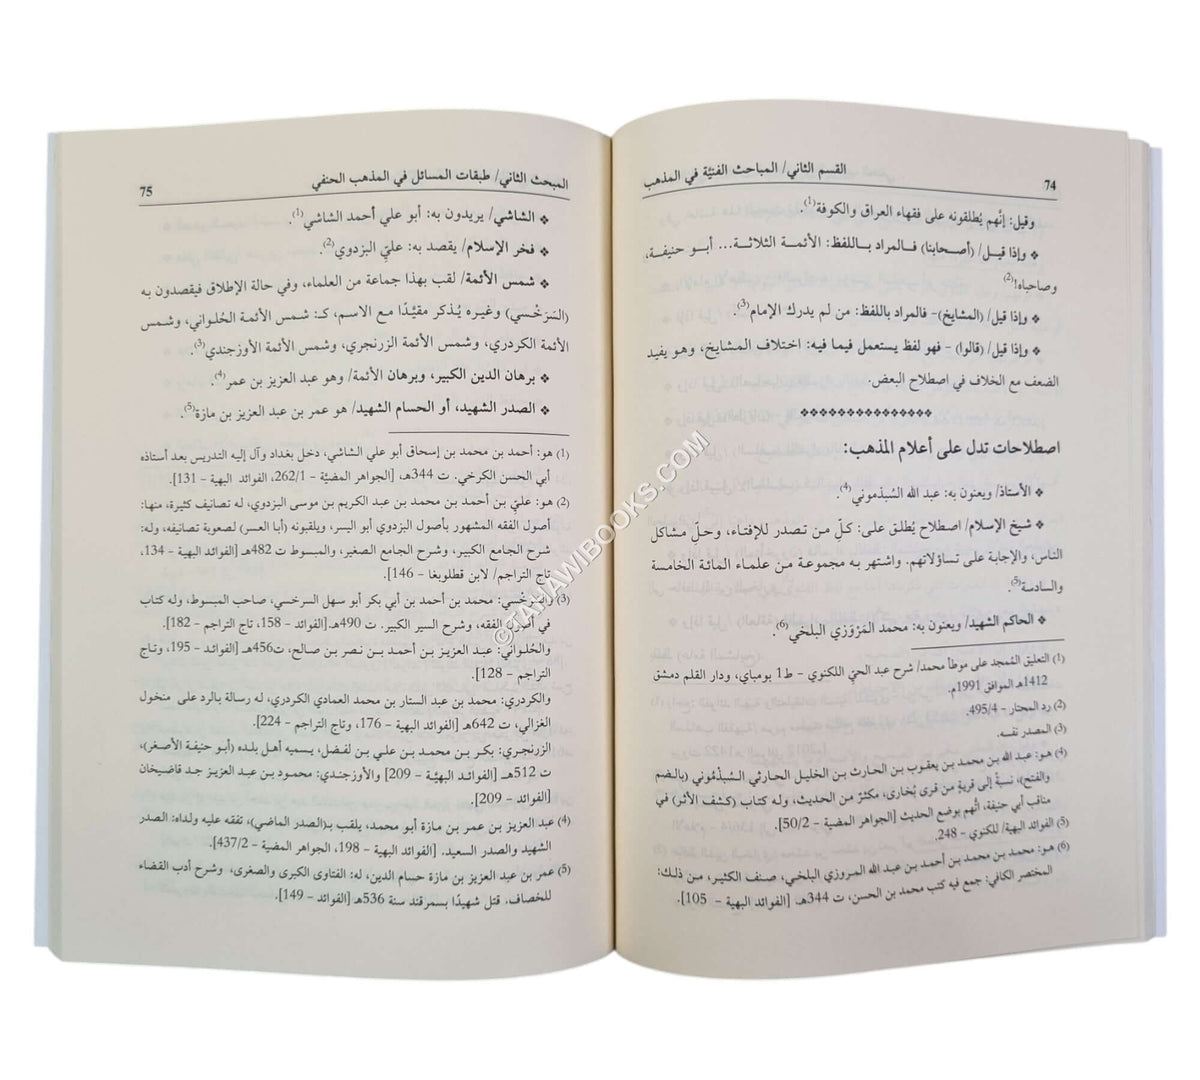 القسم الثاني/ المباحث الفنيَّة في المذهب
74
وقيل: إنَّهم يُطلقونه على فقهاء العراق والكوفة(1).
❖ وإذا قيل/ (أصحابنا) فالمراد باللفظ: الأئمة الثلاثة... أبو حنيفة،
وصاحباه!(2)
❖ وإذا قيل/ (المشايخ)- فالمراد باللفظ: من لم يدرك الإمام(3).
❖ وإذا قيل/ (قالوا) - فهو لفظ يستعمل فيما فيه: اختلاف المشايخ، وهو يفيد
الضعف مع الخلاف في اصطلاح البعض.
❖❖❖❖❖❖❖❖❖❖❖❖❖❖❖
اصطلاحات تدل على أعلام المذهب:
❖ الأستاذ/ ويعنون به: عبد الله السُبذموني(4).
❖ شيخ الإسلام/ اصطلاح يُطلق على: كلّ من تصدر للإفتاء، وحلّ مشاكل
الناس، والإجابة على تساؤلاتهم. واشتهر به مجموعة من علماء المائة الخامسة
والسادسة(5).
❖ الحاكم الشهيد/ ويعنون به: محمد المَرْوَزي البلخي(6).
(1) التعليق المُمجد على موطأ محمد/ شرح عبد الحي اللكنوي - ط1 بومباي، ودار القلم دمشق
1412هـ الموافق 1991م.
(2) رد المحتار - 495/4.
(3) المصدر نفسه.
(4) هو: عبد الله بن محمد بن يعقوب بن الحارث بن الخليل الحارثي السُّبذْمُوني (بالضم
والفتح)، نسبةً إلى قريةٍ من قرى بُخارى، مكثرٌ من الحديث، وله كتاب (كشف الأثر) في
مناقب أبي حنيفة، أتُّهم بوضع الحديث [الجواهر المضية - 50/2].
(5) الفوائد البهية/ للكنوي - 248.
(6) هو: محمد بن محمد بن أحمد بن عبد الله المروزي البلخي، صنف الكثير، من ذلك:
المختصر الكافي: جمع فيه كتب محمد بن الحسن، ت 344هـ. [الفوائد البهية - 105].
المبحث الثاني/ طبقات المسائل في المذهب الحنفي
75
❖ الشاشي/ يريدون به: أبو علي أحمد الشاشي(1).
❖ فخر الإسلام/ يقصد به: عليّ البزدوي(2).
❖ شمس الأئمة/ لقب بهذا جماعة من العلماء، وفي حالة الإطلاق فيقصدون به
(السَرَخْسي) وغيره يُذكر مقيَّدًا مع الاسم، كـ: شمس الأئمة الحُلواني، وشمس
الأئمة الكردري، وشمس الأئمة الزرنجري، وشمس الأئمة الأوزجندي(3).
❖ برهان الدين الكبير، وبرهان الأئمة/ وهو عبد العزيز بن عمر(4).
❖ الصدر الشهيد، أو الحسام الشهيد/ هو عمر بن عبد العزيز بن مازة(5).
(1) هو: أحمد بن محمد بن إسحاق أبو علي الشاشي، دخل بغداد وآل إليه التدريس بعد أستاذه
أبي الحسن الكرخي. ت 344هـ، [الجواهر المضيَّة - 262/1، الفوائد البهية - 131].
(2) هو: عليّ بن أحمد بن محمد بن عبد الكريم بن موسى البزدوي، له تصانيف كثيرة، منها:
أصول الفقه المشهور بأصول البزدوي أبو اليسر، ويلقبونه (أبا العسر) لصعوبة تصانيفه، وله:
شرح الجامع الكبير، وشرح الجامع الصغير، والمبسوط ت 482هـ [الفوائد البهية - 134،
تاج التراجم/ لابن قطلوبغا - 146].
(3) والسَرَخْسي: محمد بن أحمد بن أبي بكر أبو سهل السرخسي، صاحب المبسوط، وله كتاب
في أصول الفقه، وشرح السير الكبير. ت 490هـ.[الفوائد - 158، تاج التراجم - 182].
والحُلواني: عبد العزيز بن أحمد بن نصر بن صالح، ت456هـ [الفوائد - 195، وتاج
التراجم - 128].
والكردري: محمد بن عبد الستار بن محمد العمادي الكردري، له رسالة بالرد على منخول
الغزالي، ت 642هـ [الفوائد البهية - 176، وتاج التراجم - 224].
الزرنجري: بكر بن محمد بن علي بن لفضل، يسميه أهل بلده (أبو حنيفة الأصغر)،
ت 512هـ [الفوائد البهيَّة - 209] والأوزجندي: محمود بن عبد العزيز جد قاضيخان
[الفوائد - 209].
(4) عبد العزيز بن عمر بن مازة أبو محمد، يلقب بـ(الصدر الماضي)، تفقه عليه ولداه: الصدر
الشهيد والصدر السعيد. [الفوائد البهية - 198، الجواهر المضية - 437/2].
(5) عمر بن عبد العزيز بن مازة حسام الدين، له: الفتاوى الكبرى والصغرى، وشرح أدب القضاء
للخصاف. قتل شهيدًا بسمرقند سنة 536هـ [الفوائد - 149].
©TAHAWIBOOKS.COM